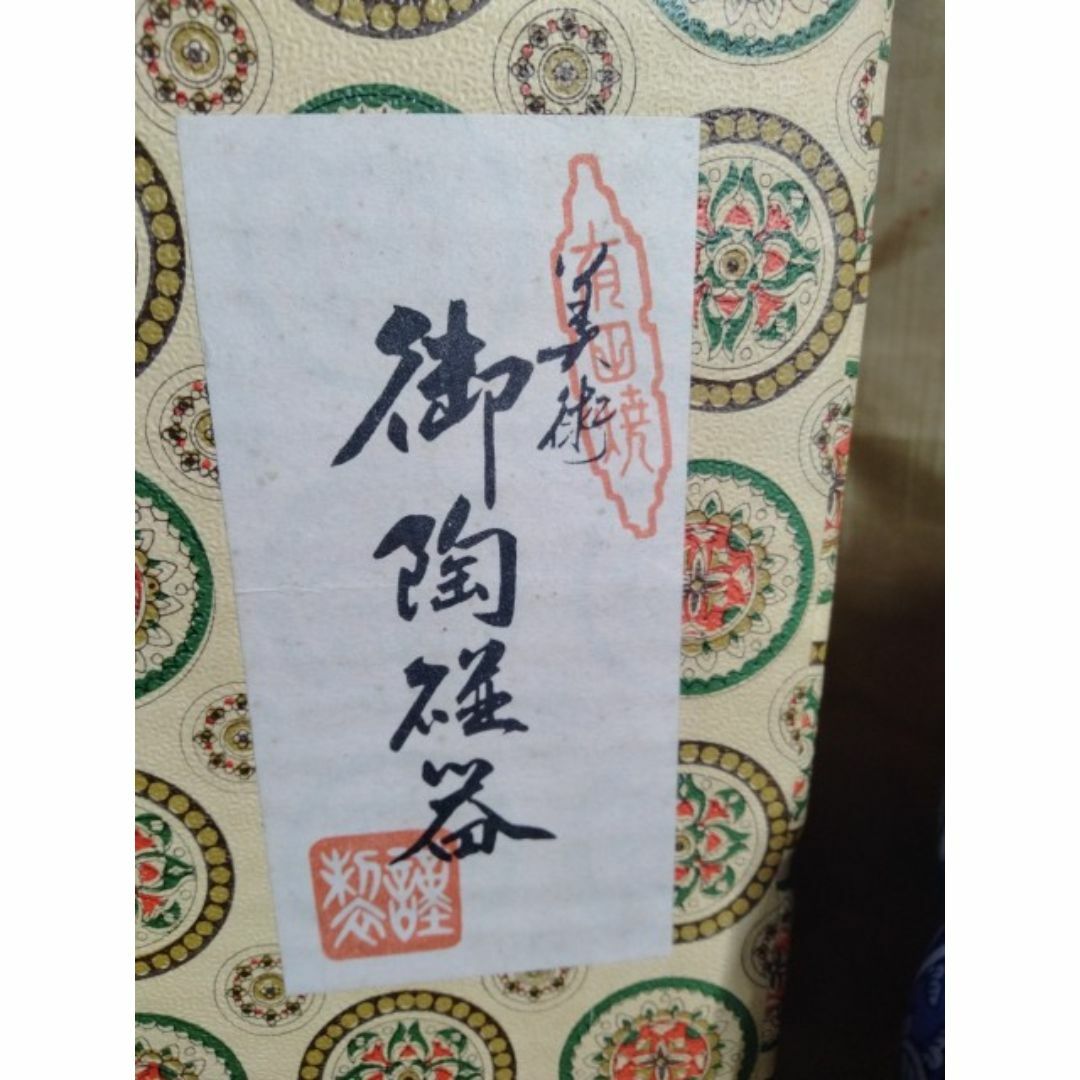 有田焼
美術
御陶磁器
謹製